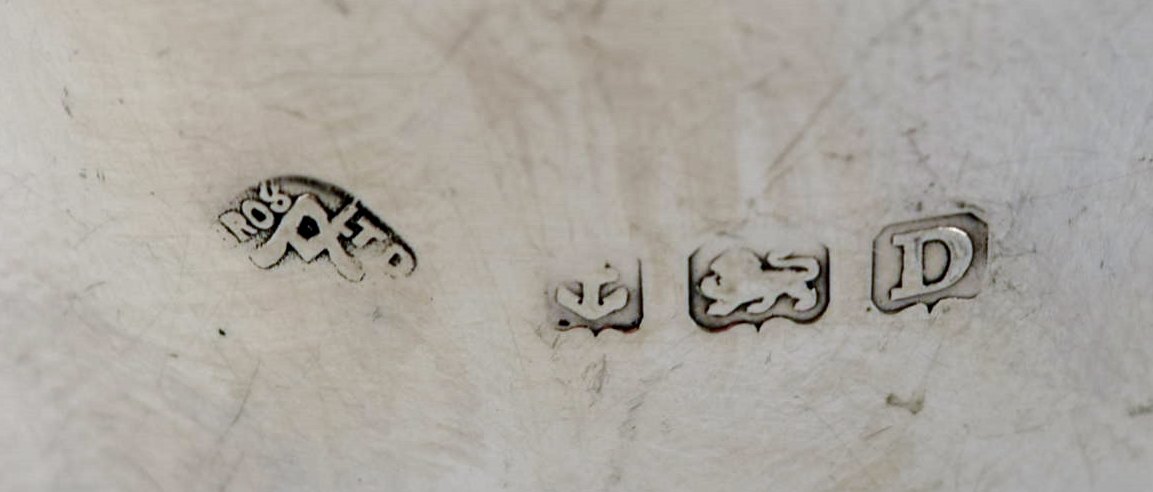 ROS LTD
D